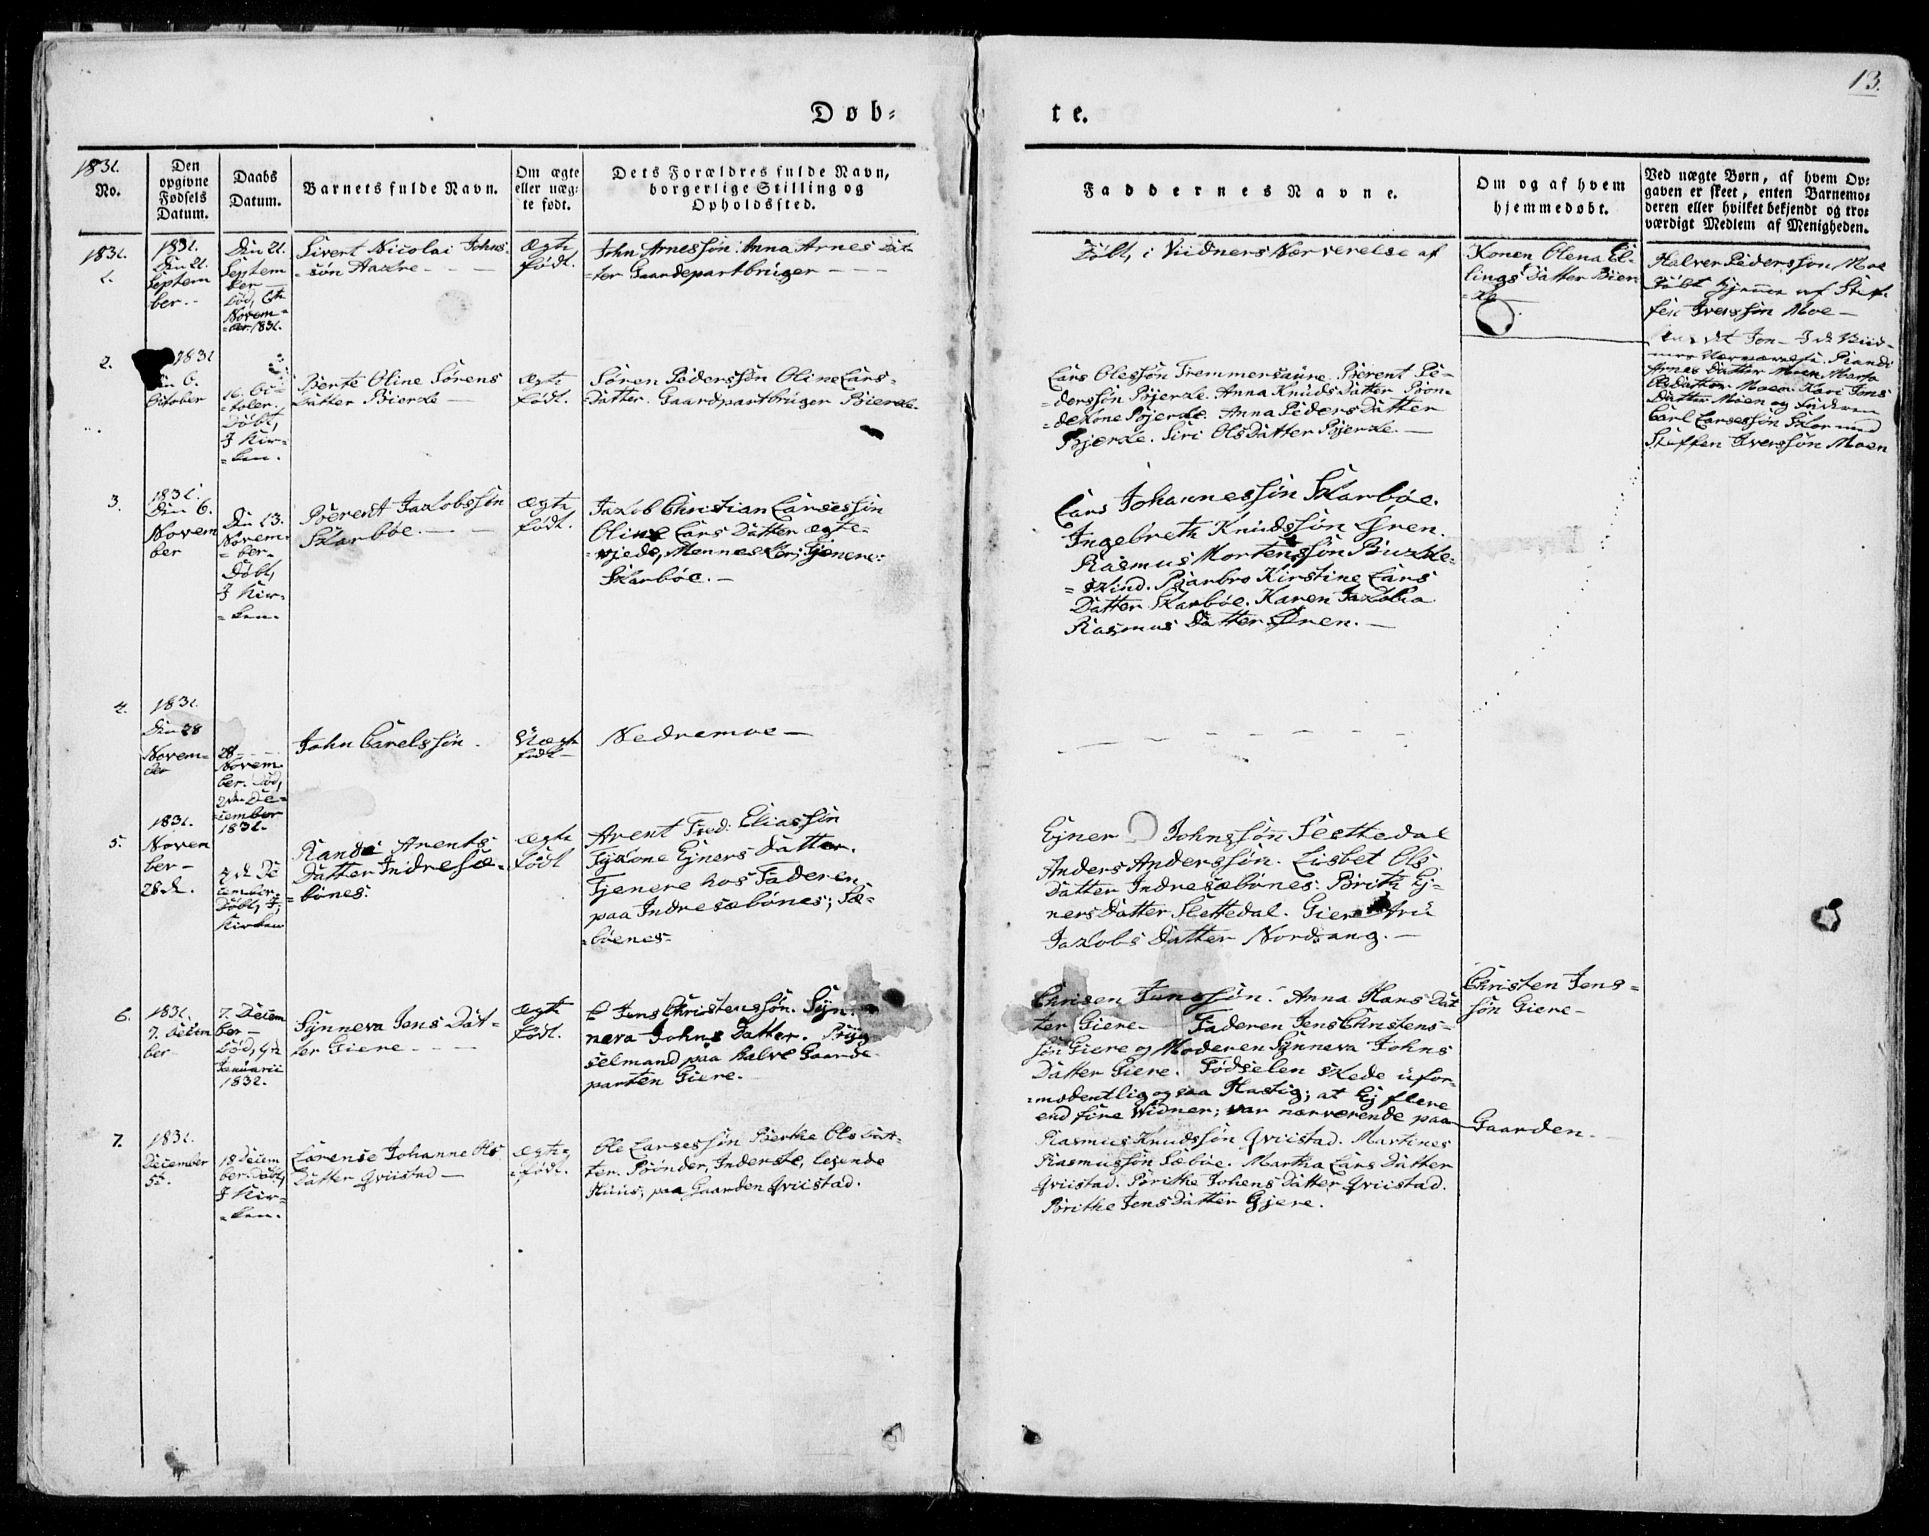 13.
Døb-
te.
1831.
No.
Den
opgivne
Fødsels
Datum.
Daabs
Datum.
Barnets fulde Navn.
Om ægte
eller uæg-
te født.
Dets Forældres fulde Navn,
borgerlige Stilling og
Opholdssted.
Faddernes Navne.
Om og af hvem
hjemmedøbt.
Ved uægte Børn, af hvem Op-
gaven er skeet, enten Barnemo-
deren eller hvilket bekjendt og tro-
værdigt Medlem af Menigheden.
1831.
1.
1831.
Din 21.
Septem
ber.-
Din 21.
Septem
ber
Død, 6te
Novem-
-ber 1831.
Sivert Nicolai Johns-
-søn
Ægte
født.
John Arnessøn. Anna Arnes Dat-
-ter Gaardepartbruger
Døbt, i Viidners Nærverelse af
Konen Olena El-
lings Datter Bier-
-ke
Halver Pederssøn Moe
Døbt hjemme af Stef-
fen Iverssøn Moe-
2.
1831
Din 6.
October
16. Oc-
tober.
Døbt,
I Kir-
-ken.
Berte Oline Sørens
Datter Bierke
ægte
født.
Søren Pederssøn Oline Lars-
Datter. Gaardpartbruger Bierke
Lars Olessøn Tremmersauve. Berent Pe-
-derssøn Bjerke. Anna Knuds Datter Bon-
-dekone Bjerke. Anna Peders Datter
Bjerke. Siri Ols Datter Bjerke.
Arnes Datter Moen. Marta
Datter Moen. Kari Jons
Datter Moen og Faderen
Carl Larsessøn med
Steffen Iverssøn Moen
3.
1831.
Din 6.
Novem
ber
Din 13.
Novem-
-ber-
Døbt,
I Kir-
-ken.
Berent Jakobssøn
Skarbøe.
ægte
født.
Jakob Christian Larsessøn
Oline Lars Datter ægte-
-viede, Mennesker; Tjenere:
Skarbøe.
Lars Johannessøn Skarbøe.
Ingebreth Knudssøn Øren.
Rasmus Mortenssøn Bukke-
-skind. Barbro Kirstine Lars
Datter Skarbøe. Karen Jakobia
Rasmus Datter Øren.
4.
1831.
Din 28
Novem-
ber
28
Novem-
ber. Død,
2den De-
-cember
1831.
John Carelssøn.
Uægte
født
Nedremoe
5.
1831.
Novem
ber-
28de.
4de De
cember.
Døbt, I
Kirken
Rande Arents
Datter Indresæ-
-bönes.
ægte
født
Arent Fred: Eliassøn
Fejkone Ejners Datter.
Tjenere hos Faderen
paa Indresæbönes; Sæ-
-böenes.
Ejner Johnssøn Slettedal
Anders Anderssøn. Lisbet Ols
Datter Indresæbönes. Brith Ej-
ners Datter Slettedal.
Jakobs Datter Nordvang.
6.
1831.
7. Decem
ber
7. Decem
ber-
Død,
Januarii
1832.
Synneva Jens Dat-
ter Giere
ægte
født.
Jens Christenssøn. Syn-
neva Johns Datter. Byg
selmand paa halve Gaarde-
parten Giere.
Chrisen Jenssøn. Anna Hans Dat
ter Giere- Faderen Jens Christens-
søn Giere og Moderen Synneva Johns
Datter Giere. Fødselen skede ufor-
-modentlig og saa Hastig; at Ej flere
end fire Widner; var nærværende paa
Christen Jens-
søn Giere-
Gaarden.
7.
1831.
December
5t.
18 Decem
ber. Døbt,
I Kir-
-ken.
Lorense Johanne Ols
Datter Qviistad
ægte,
født.
Ole Larsessøn Berthe Ols Dat-
ter. Bønder, Inderste, lejende
Huus; paa Gaarden Qviistad.
Rasmus Knudssøn Qviistad. Martines
Rasmussøn Sæbøe. Martha Lars Datter
Qviistad. Brithe Johens Datter Qviistad.
Brithe Jens Datter Gjere.